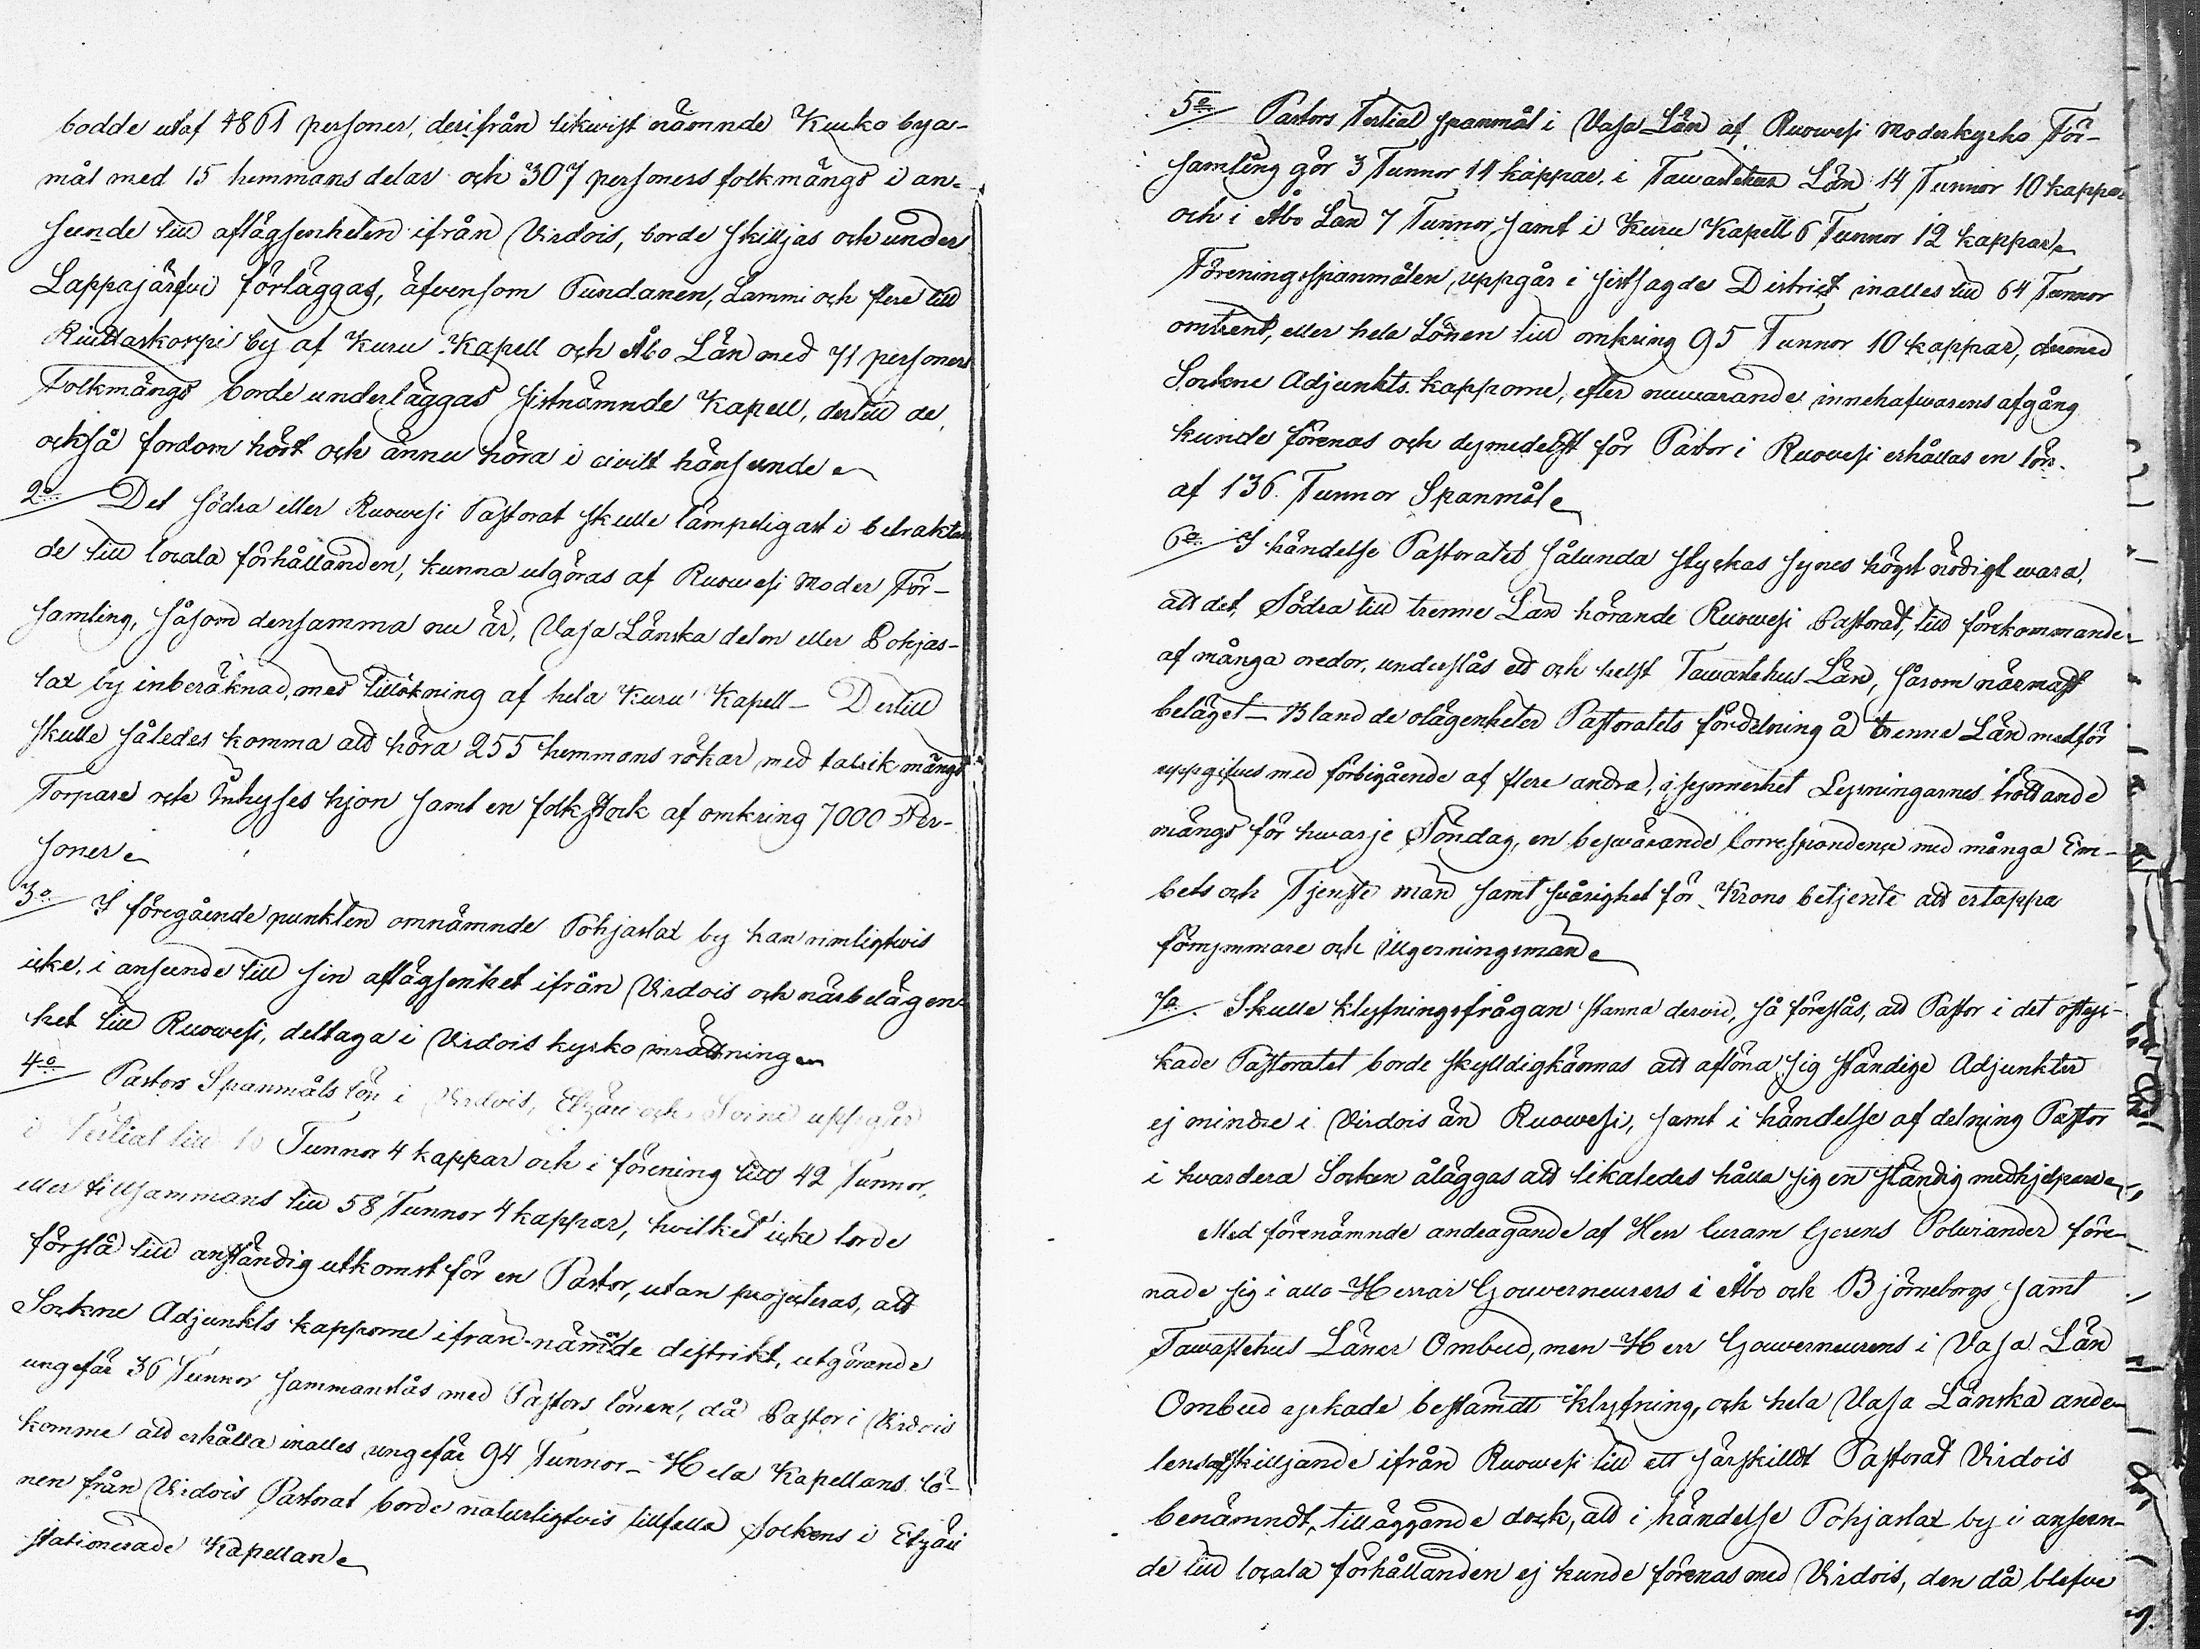 bodde utaf 4861 personer, derifrån likwist nämnde Kuuko bya-
mål med 15 hemmans delar och 307 personers folkmängd i an-
seende till aflägsenheten ifrån Virdois, borde skiljas och under
Lappajärfvi förläggas, äfvensom Pundanen, Lammi och flere till
Ruittaskorpi by af Kuru Kapell och Åbo Län med 71 personers
Folkmängd borde underläggas sistnämnde Kapell, dertill de,
också fordom hört och ännu höra i civilt hänseende
2o Det södra eller Ruowesi Pastorat skulle lämpeligast i betraktan
de till locala förhållanden, kunna utgöras af Ruowesi Moder För-
samling, såsom densamma nu är, Vasa Länska delen eller Pohjas-
lax by inberäknad, med tillökning af hela Kuru Kapell - Dertill
skulle således komma att höra 255 hemmans rökar med talrik mängd
Torpare och Inhyses hjon samt en folkstock af omkring 7000 Per-
soner
3o I föregående punkten omnämnde Pohjaslax by kan rimligtwis
icke, i anseende till sin aflägsenhet ifrån Virdois och närbelägen-
het till Ruowesi, deltaga i Virdois kyrko inrättningen
4o Pastors Spanmåls lön i Virdois, Etzäri och Soini uppgår
i Tertial till 16 Tunnor 4 kappar och i förening till 42 Tunnor,
eller tillsammans till 58 Tunnor 4 kappar, hvilket icke torde
förslå till anständig utkomst för en Pastor, utan projecteras, att
Sockne Adjunkts kapporne ifrån nämnde distrikt, utgörande
ungefär 36 Tunnor sammanslås med Pastors lönen, då Pastor i Virdois
komme att erhålla inalles ungefär 94 Tunnor - Hela Kapellans lö-
nen från Virdois Pastorat borde naturligtvis tillfalla Sockens i Etzäri
stationerade Kapellan
5o Pastors Tertial spanmål i Vasa Län af Ruowesi Moderkyrko För-
samling gör 3 Tunnor 11 kappar, i Tawastehus Län 14 Tunnor 10 kappar
och i Åbo Län 7 Tunnor, samt i Kuru Kapell 6 Tunnor 12 kappar
Föreningsspanmålen, uppgår i sistsagde District inalles till 64 Tunnor
omtrent, eller hela Lönen till omkring 95 Tunnor 10 kappar, dermed
Sockne Adjunkts kapporne, efter nuwarande innehafwarens afgång
kunde förenas och dymedelst för Pastor i Ruowesi erhållas en lön
af 136 Tunnor Spanmål
6o I händelse Pastoratet sålunda styckas synes högst nödigt wara,
att det, Södra till trenne Län hörande Ruowesi Pastorat, till förekommande
af många oredor, underslås ett och helst Tawastehus Län, såsom närmast
beläget - Bland de olägenheter Pastoratets fördelning å trenne Län medför
uppgifves med förbigående af flere andra, i synnerhet Lysningarnes tröttande
mängd för hwarje Söndag, en beswärande Correspondence med många Em-
bets och Tjenste män samt svårighet för Krono betjente att ertappa
förrymmare och Illgerningsmän
7o Skulle klyfningsfrågan stanna dervid, så föreslås, att Pastor i det ostyc-
kade Pastoratet borde skylldigkännas att aflöna sig ständige Adjunkter
ej mindre i Virdois än Ruowesi, samt i händelse af delning Pastor
i hvardera Socken åläggas att likaledes hålla sig en ständig medhjelpare
Med förenämnde andragande af Herr Curam Gerens Polviander före-
nade sig i allo Herrar Gouverneurers i Åbo och Björneborgs samt
Tawastehus Läner Ombud, men Herr Gouverneurens i Vasa Län
Ombud yrkade bestämdt klyfning, och hela Vasa Länska ande-
lens afskiljande ifrån Ruowesi till ett särskilldt Pastorat Virdois
benämndt, tilläggande dock, att i händelse Pohjaslax by i anseen-
de till locala förhållanden ej kunde förenas med Virdois, den då blefve